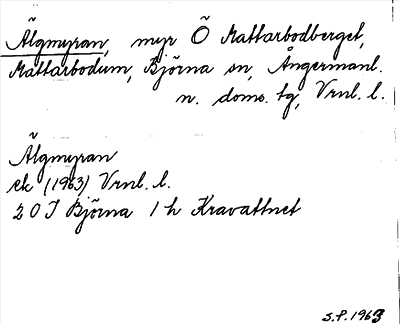 Älgmyran, myr Ö Mattarbodberget,
Mattarbodum, Björna sn, Ångermanl.
n. doms. tg, Vrnl. l.
Älgmyran
ek (1963) Vrnl. l.
20J Björna 1h Kravattnet
S.P. 1963